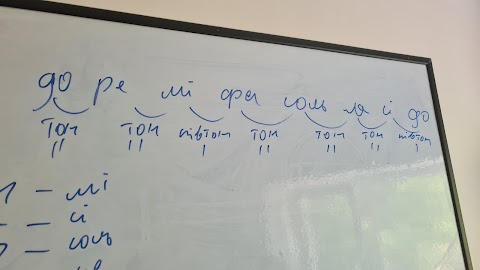 до ре мі фа соль ля сі до
тон тон півтон тон тон тон півтон
|| || | || || || |
– мі
– сі
– соль